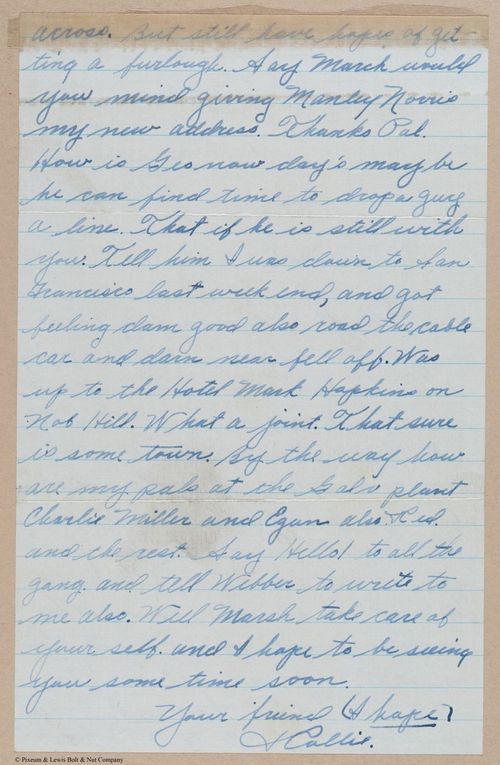 across. But still have hopes of get-
ting a furlough. Say Marsh would
you mind giving Manley Norris
my new address. Thanks Pal.
How is Geo now day's maybe
he can find time to drop a guy
a line. That if he is still with
you. Tell him I was down to San
Francisco last week end, and got
feeling dam good also road the cable
car and darn near fell off. Was
up to the Hotel Mark Hopkins on
Nob Hill. What a joint. That sure
is some town. By the way how
are my pals at the Galv plant
Charlie Miller and Egan also Red.
and the rest. Say Hello! to all the
gang. and tell Webber to write to
me also. Well Marsh take care of
your self. and I hope to be seeing
you some time soon.
Your friend (I hope)
Collie.
© Pixeum & Lewis Bolt & Nut Company